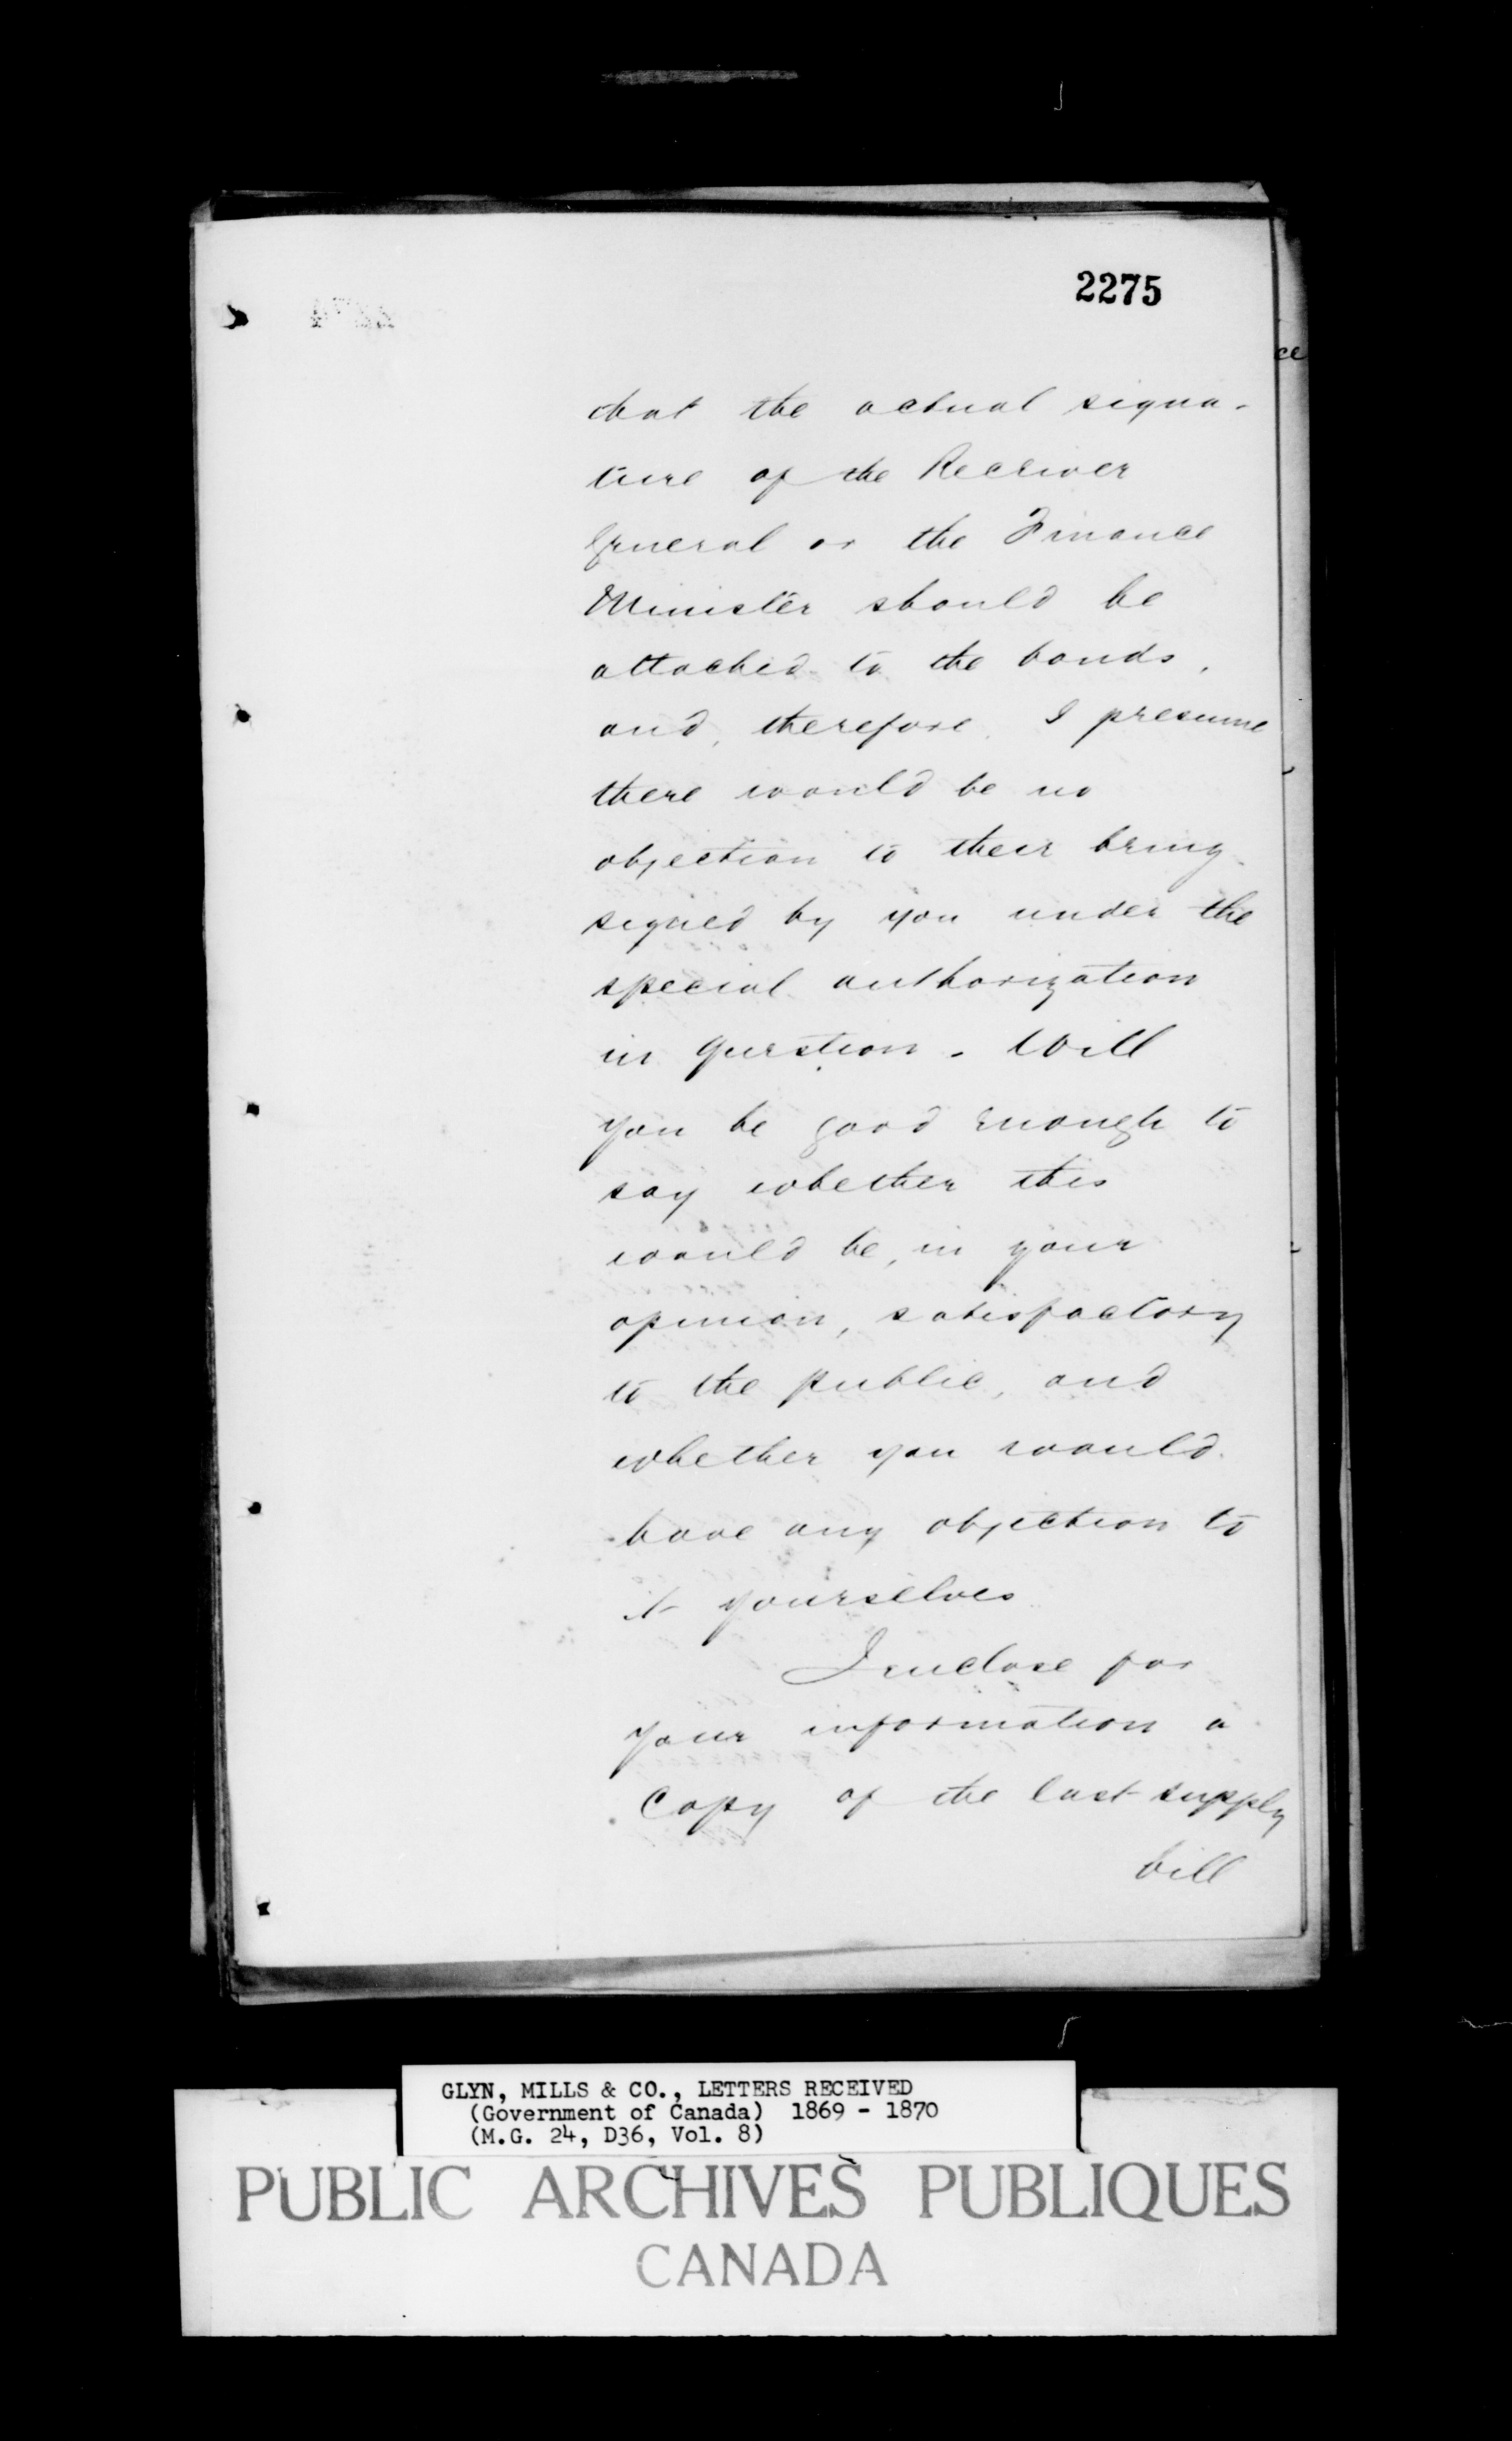 2275
that the actual signa-
ture of the Receiver
General or the Finance
Minister should be
attached to the bonds,
and, therefore, I presume
there would be no
objection to their being
signed by you under the
special authorization
in question. Will
you be good enough to
say whether this
would be, in your
opinion, satisfactory
to the public, and
whether you would
have any objection to
it yourselves
I enclose for
your information a
Copy of the last supply
bill
GLYN, MILLS & CO., LETTERS RECEIVED
(Government of Canada) 1869 - 1870
(M.G. 24, D36, Vol. 8)
PUBLIC ARCHIVES PUBLIQUES
CANADA